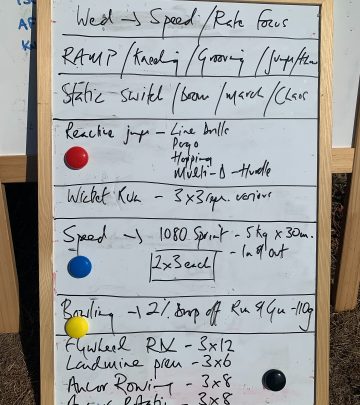 Wed → Speed / Rate Focus
RAMP / Kneeling / Grooving / Jumps/
Static Switch / Boom / March / Chaos
Reactive jumps – Line Drills
Pogo
Hopping
Multi-D – Hurdle
Wicket Run – 3x3
Speed → 1080 Sprint – 5kg x 30m.
– In & out
2x3 each
Bowling → 2% Drop off Run & Gun – 110g
Flywheel RDL – 3x12
Landmine press – 3x6
Anchor Rowing – 3x8
– 3x8